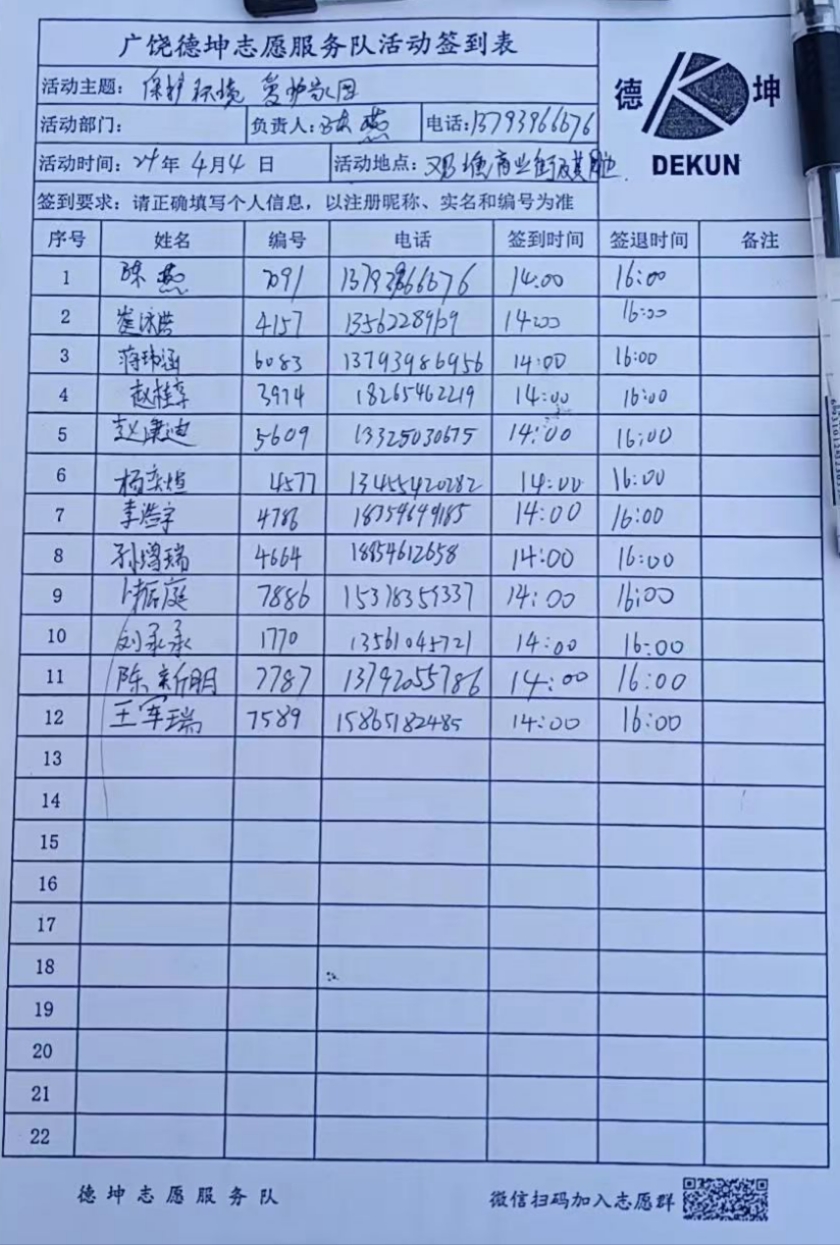 广饶德坤志愿服务队活动签到表
活动主题: 保护环境 爱护家园
德 坤
DEKUN
活动部门: 负责人: 陈燕 电话: 13793966676
活动时间: 24年 4月4日 活动地点: 商业街及其周边
签到要求: 请正确填写个人信息，以注册昵称、实名和编号为准
序号 姓名 编号 电话 签到时间 签退时间 备注
1 陈燕 7091 13793966676 14:00 16:00
2 崔 4157 1356228969 14:00 16:00
3 蒋玮涵 6083 13793986956 14:00 16:00
4 赵桂军 3974 18265462219 14:00 16:00
5 赵康迪 5609 13325030675 14:00 16:00
6 杨奕煊 4577 13455420282 14:00 16:00
7 李浩宇 4786 18754649185 14:00 16:00
8 孙增瑞 4664 18954612658 14:00 16:00
9 振庭 7886 15378359337 14:00 16:00
10 刘承承 1770 13561045721 14:00 16:00
11 陈新明 7787 13792055786 14:00 16:00
12 王军瑞 7589 15865182485 14:00 16:00
13
14
15
16
17
18
19
20
21
22
德坤志愿服务队 微信扫码加入志愿群